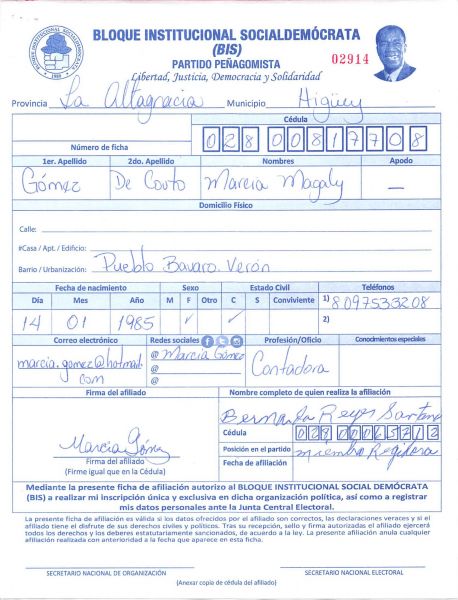 BLOQUE INSTITUCIONAL SOCIALDEMÓCRATA
(BIS)
PARTIDO PEÑAGOMISTA
02914
Libertad, Justicia, Democracia y Solidaridad
Provincia La Altagracia Municipio Higüey
Cédula
Número de ficha 028 0081770 8
1er. Apellido 2do. Apellido Nombres Apodo
Gómez De Couto Marcia Magaly —
Domicilio Físico
Calle:
#Casa / Apt. / Edificio:
Barrio / Urbanización: Pueblo Bavaro. Verón
Fecha de nacimiento Sexo Estado Civil Teléfonos
Día Mes Año M F Otro C S Conviviente 1) 8097533208
14 01 1985 ✓ ✓ 2)
Correo electrónico Redes sociales Profesión/Oficio Conocimientos especiales
marcia.gomez@hotmail. @ Marcia Gómez Contadora
com @
@
Firma del afiliado Nombre completo de quien realiza la afiliación
Reyes Santana
Marcia Gómez Cédula
Firma del afiliado Posición en el partido miembro Regidora
(Firme igual que en la Cédula) Fecha de afiliación
Mediante la presente ficha de afiliación autorizo al BLOQUE INSTITUCIONAL SOCIAL DEMÓCRATA
(BIS) a realizar mi inscripción única y exclusiva en dicha organización política, así como a registrar
mis datos personales ante la Junta Central Electoral.
La presente ficha de afiliación es válida si los datos ofrecidos por el afiliado son correctos, las declaraciones veraces y si el
afiliado tiene el disfrute de sus derechos civiles y políticos. Tras su recepción, sello y firma autorizadas el afiliado ejercerá
todos los derechos y los deberes estatutariamente sancionados, de acuerdo a la ley. La presente afiliación anula cualquier
afiliación realizada con anterioridad a la fecha que aparece en esta ficha.
SECRETARIO NACIONAL DE ORGANIZACIÓN SECRETARIO NACIONAL ELECTORAL
(Anexar copia de cédula del afiliado)